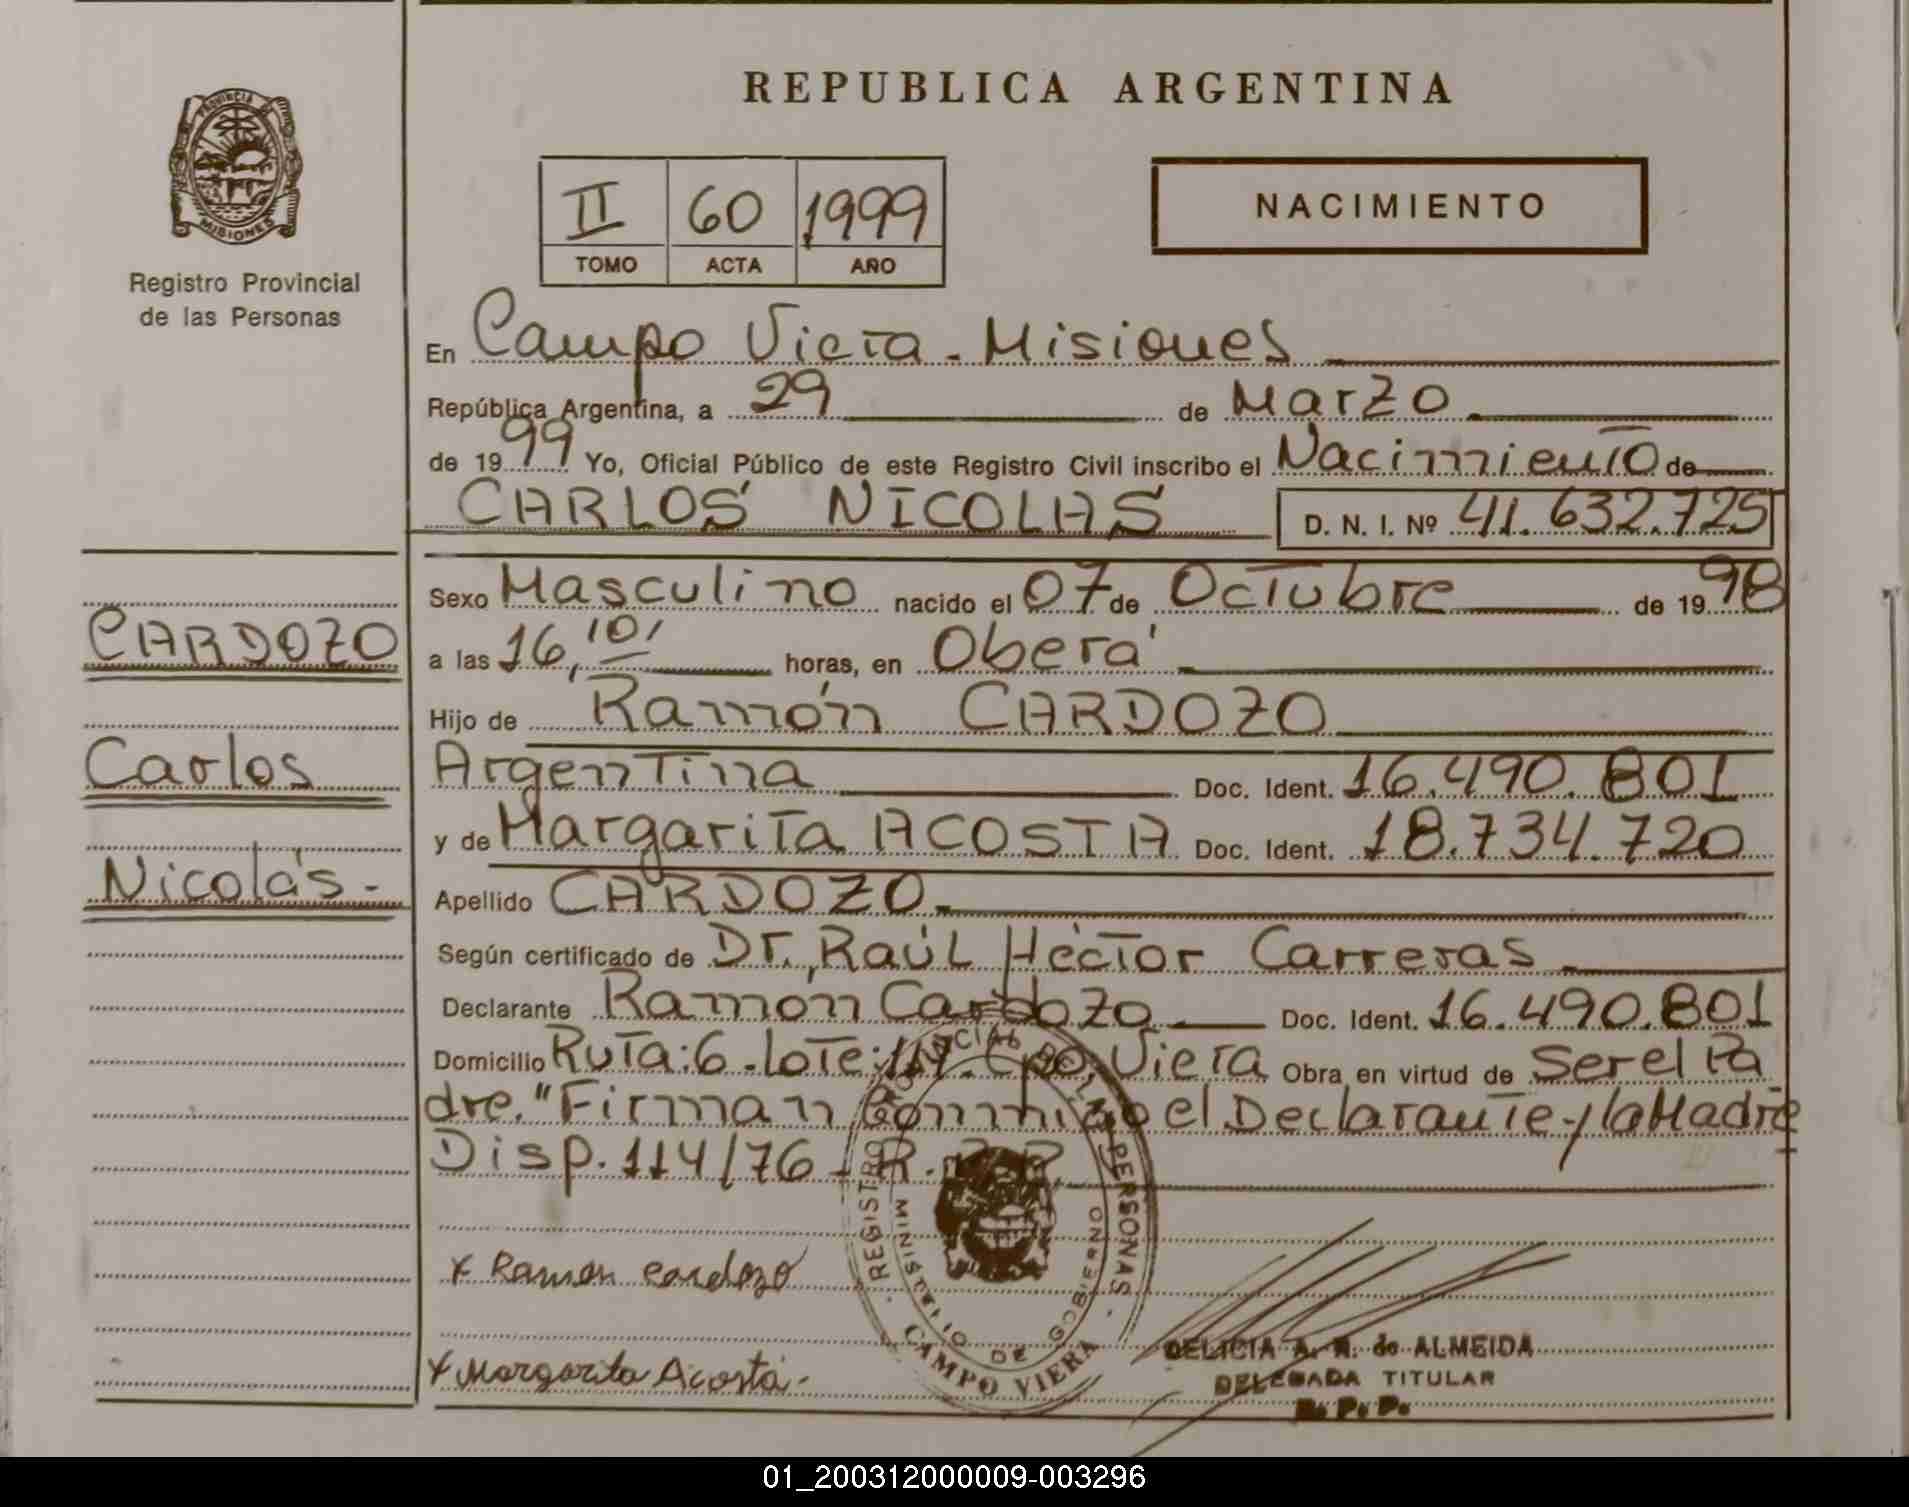 REPUBLICA ARGENTINA
PROVINCIA DE
MISIONES
Registro Provincial
de las Personas
II 60 1999
TOMO ACTA AÑO
NACIMIENTO
En Campo Viera - Misiones
República Argentina, a 29 de Marzo
de 1999 Yo, Oficial Público de este Registro Civil inscribo el Nacimiento de
CARLOS NICOLAS D. N. I. Nº 41.632.725
CARDOZO
Carlos
Nicolás -
Sexo Masculino nacido el 07 de Octubre de 1998
a las 16,10 horas, en Oberá
Hijo de Ramón CARDOZO
Argentina Doc. Ident. 16.490.801
y de Margarita ACOSTA Doc. Ident. 18.734.720
Apellido CARDOZO
Según certificado de Dr. Raúl Héctor Carreras
Declarante Ramón Cardozo Doc. Ident. 16.490.801
Domicilio Ruta: 6 - Lote: Cpo. Viera Obra en virtud de Ser el Pa
dre. "Firman Conmigo el Declarante y la Madre
Disp. 114/76 - R.P.P.
x Ramon cardozo
x Margarita Acosta -
REGISTRO PROVINCIAL DE LAS PERSONAS
MINISTERIO DE GOBIERNO
CAMPO VIERA
DELICIA A. R. de ALMEIDA
DELEGADA TITULAR
R. P. P.
01_200312000009-003296